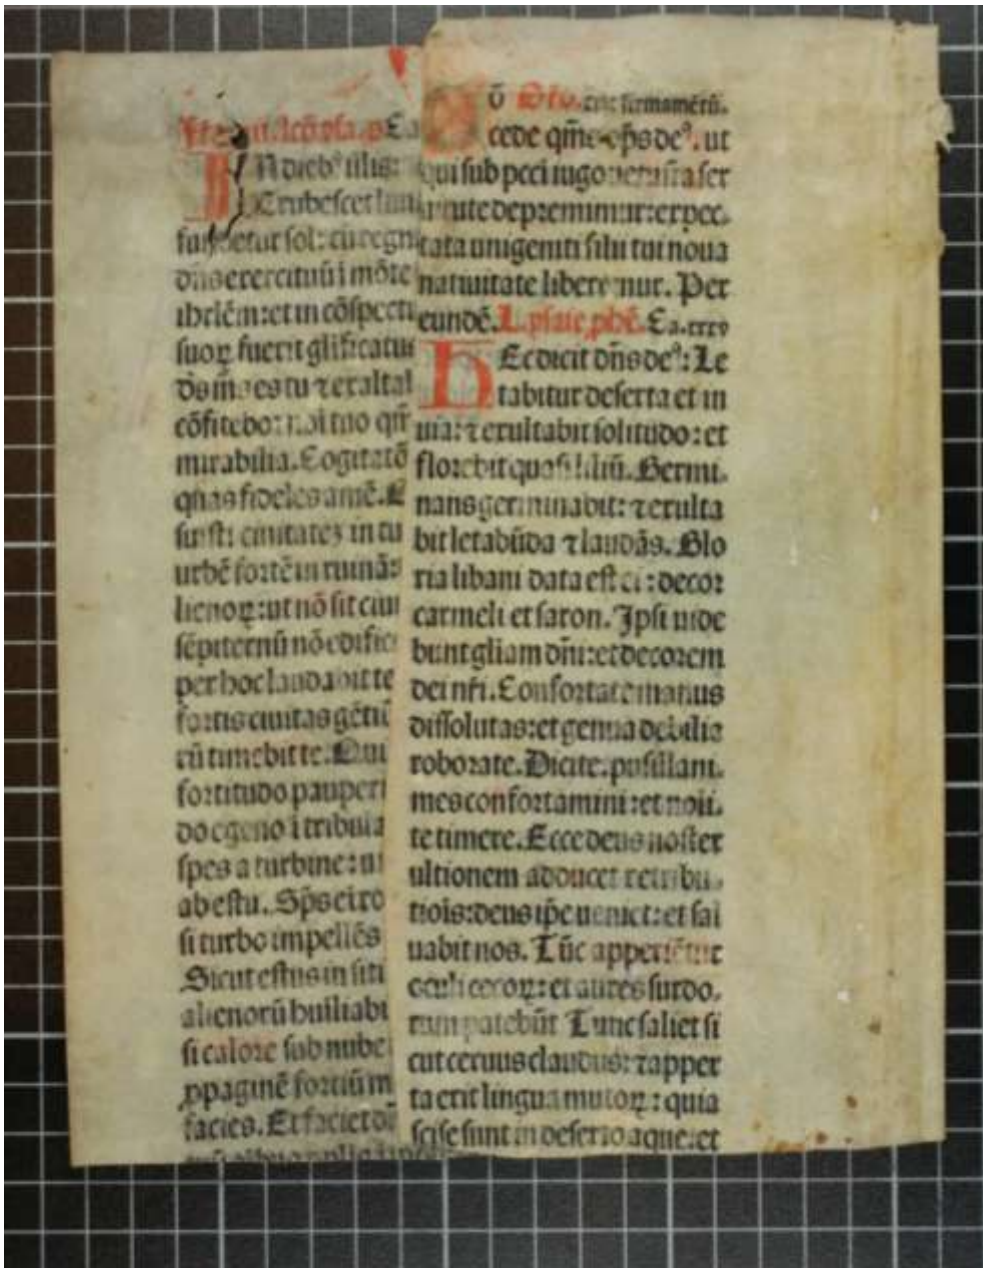 N dieb⁹ illis:
Erubescet lun
fundetur sol: cū regn
dn̄s exercituū ī mōte
ihrl̄em: et in cōspectu
suoꝝ fuerit gl̄ificatus
cōfitebor noī tuo qm̄
mirabilia. Cogitatō
q̄nas fideles amē.
ciuitateʒ in tu
urbē fortē in ruinā:
lienoꝝ: ut nō sit ciui
sēpiternū nō edific
per hoc laudabit te
fortis ciuitas gētiū
rū timebit te. Qui
fortitudo pauperi
do egeno ī tribula
spes a turbine: u
ab estu. Sp̄s ei ro
si turbo impellēs
Sicut estus in siti
alienorū huiliabi
si calore sub nube
ꝓpaginē fortiū m
facies. Et faciet dn̄
firmamētū.
cede qm̄s op̄s de⁹. ut
qui sub pcci iugo uetusta ser
uitute depremimur: expec.
tata unigeniti filii tui noua
natiuitate liberemur. Per
eundē. L. ysaie ꝓphē. Ca. xxxv
HEc dicit dn̄s de⁹: Le
tabitur deserta et in
uia: ⁊ exultabit solitudo: et
florebit quasi liliū. Germi.
nans germinabit: ⁊ exulta
bit letabūda ⁊ laudās. Glo
ria libani data est ei: decor
carmeli et saron. Ipsi uide
bunt gliam dn̄i: et decorem
dei nr̄i. Confortate manus
dissolutas: et genua debilia
roborate. Dicite. pusillani.
mes confortamini: et noli.
te timere. Ecce deus noster
ultionem adducet retribu.
tiōis: deus ip̄e ueniet: et sal
uabit nos. Tūc apperiētur
oculi cecoꝝ: et aures surdo.
rum patebūt Tunc saliet si
cut ceruus claudus: ⁊ apper
ta erit lingua mutoꝝ: quia
scise sunt in deserto aque: et